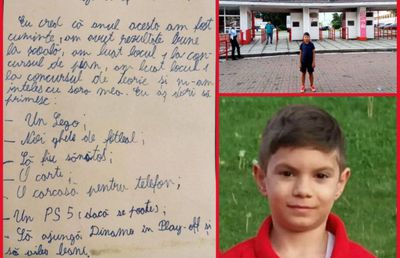 Eu cred că anul acesta am fost
cuminte, am avut rezultate bune
la școală, am luat locul 1 la con-
cursul de pian, am luat locul 1
la concursul de teorie și m-am
înțeles cu sora mea. Eu aș dori să
primesc:
- Un Lego;
- Noi ghete de fotbal;
- Să fiu sănătos;
- O carte;
- O carcasă pentru telefon;
- Un PS 5 (dacă se poate);
- Să ajungă Dinamo în Play-off și
să bani